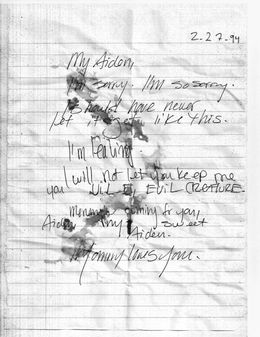 2-27-94
My Aiden,
I'm sorry. I'm so sorry.
I should have never
let it get like this.
I'm fearing.
I will not let you keep me
you EVIL EVIL CREATURE.
coming for you,
Aiden my sweet
Aiden.
Mommy loves you.